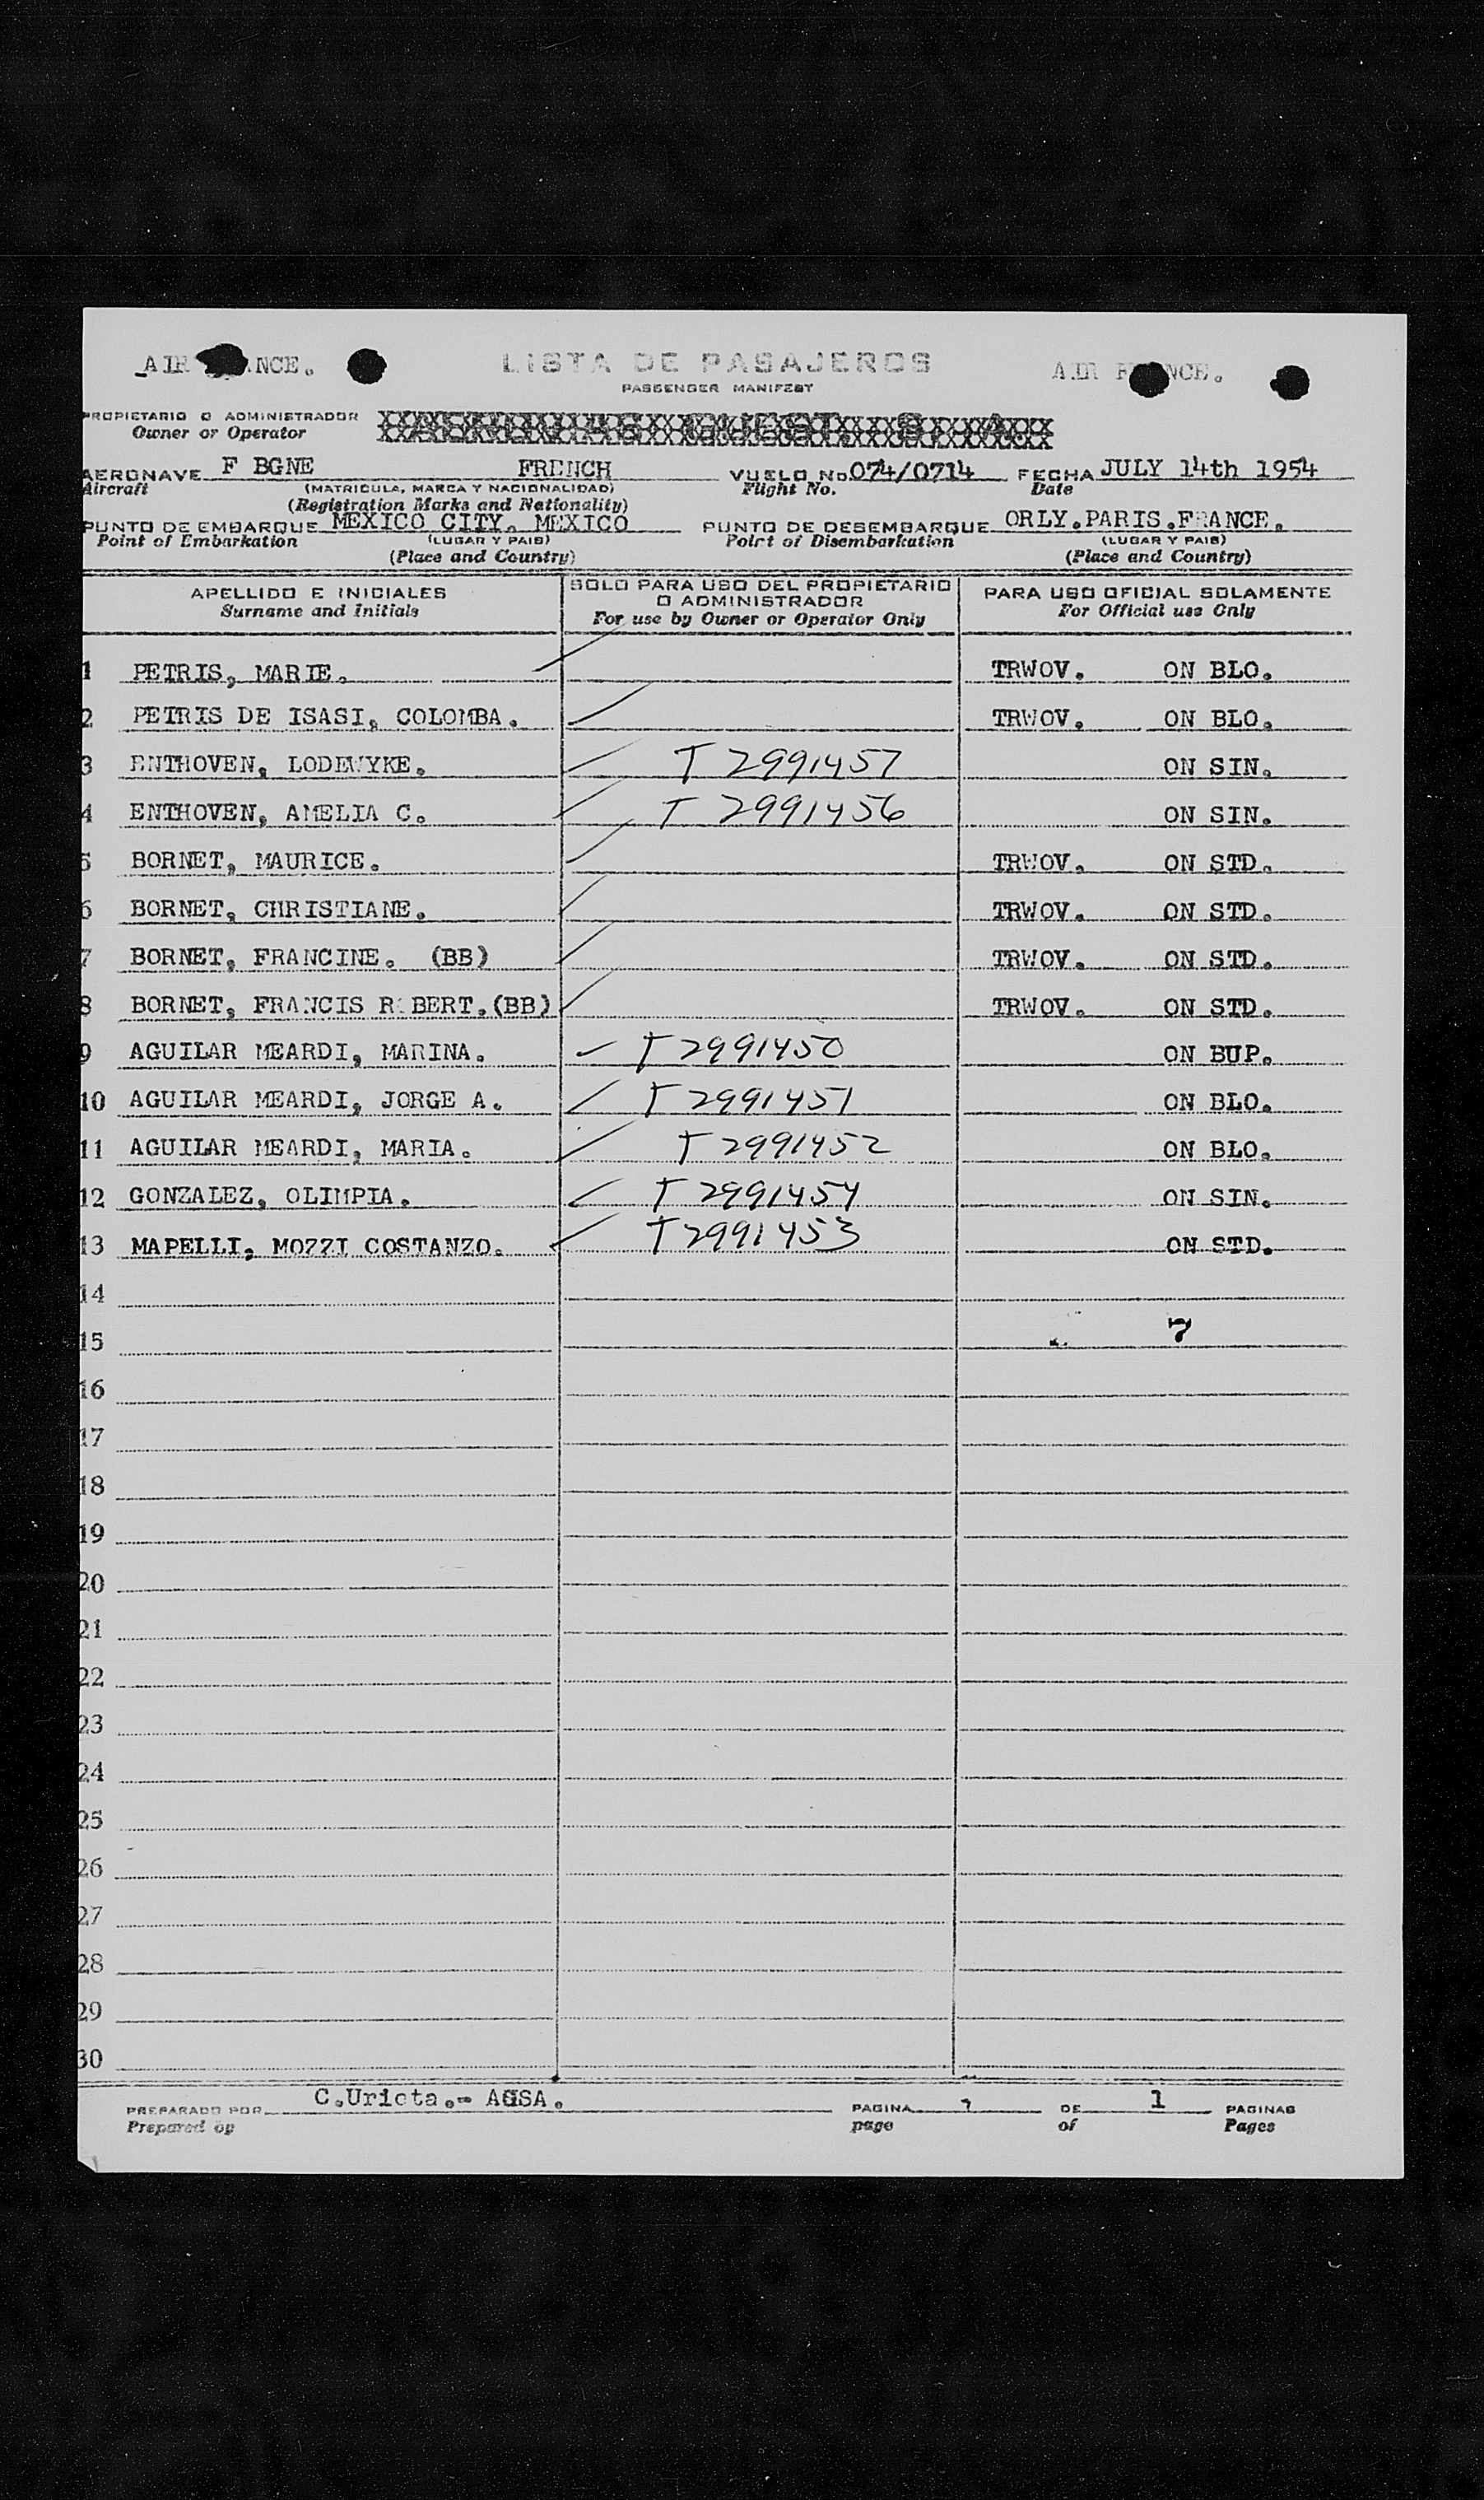 AIR FRANCE. LISTA DE PASAJEROS AIR FRANCE.
PASSENGER MANIFEST
PROPIETARIO O ADMINISTRADOR
Owner or Operator
AERONAVE F BGNE FRENCH VUELO No. 074/0714 FECHA JULY 14th 1954
Aircraft (MATRICULA, MARCA Y NACIONALIDAD) Flight No. Date
(Registration Marks and Nationality)
PUNTO DE EMBARQUE MEXICO CITY, MEXICO PUNTO DE DESEMBARQUE ORLY.PARIS.FRANCE.
Point of Embarkation (LUGAR Y PAIS) Point of Disembarkation (LUGAR Y PAIS)
(Place and Country) (Place and Country)
APELLIDO E INICIALES SOLO PARA USO DEL PROPIETARIO O ADMINISTRADOR PARA USO OFICIAL SOLAMENTE
Surname and Initials For use by Owner or Operator Only For Official use Only
1 PETRIS, MARIE. TRWOV. ON BLO.
2 PETRIS DE ISASI, COLOMBA. TRWOV. ON BLO.
3 ENTHOVEN, LODEWYKE. T 2991457 ON SIN.
4 ENTHOVEN, AMELIA C. T 2991456 ON SIN.
5 BORNET, MAURICE. TRWOV. ON STD.
6 BORNET, CHRISTIANE. TRWOV. ON STD.
7 BORNET, FRANCINE. (BB) TRWOV. ON STD.
8 BORNET, FRANCIS ROBERT.(BB) TRWOV. ON STD.
9 AGUILAR MEARDI, MARINA. T 2991450 ON BUP.
10 AGUILAR MEARDI, JORGE A. T 2991451 ON BLO.
11 AGUILAR MEARDI, MARIA. T 2991452 ON BLO.
12 GONZALEZ, OLIMPIA. T 2991454 ON SIN.
13 MAPELLI, MOZZI COSTANZO. T 2991453 ON STD.
14
15 7
16
17
18
19
20
21
22
23
24
25
26
27
28
29
30
PREPARADO POR C.Urieta.- AGSA. PAGINA DE 1 PAGINAS
Prepared by page of Pages